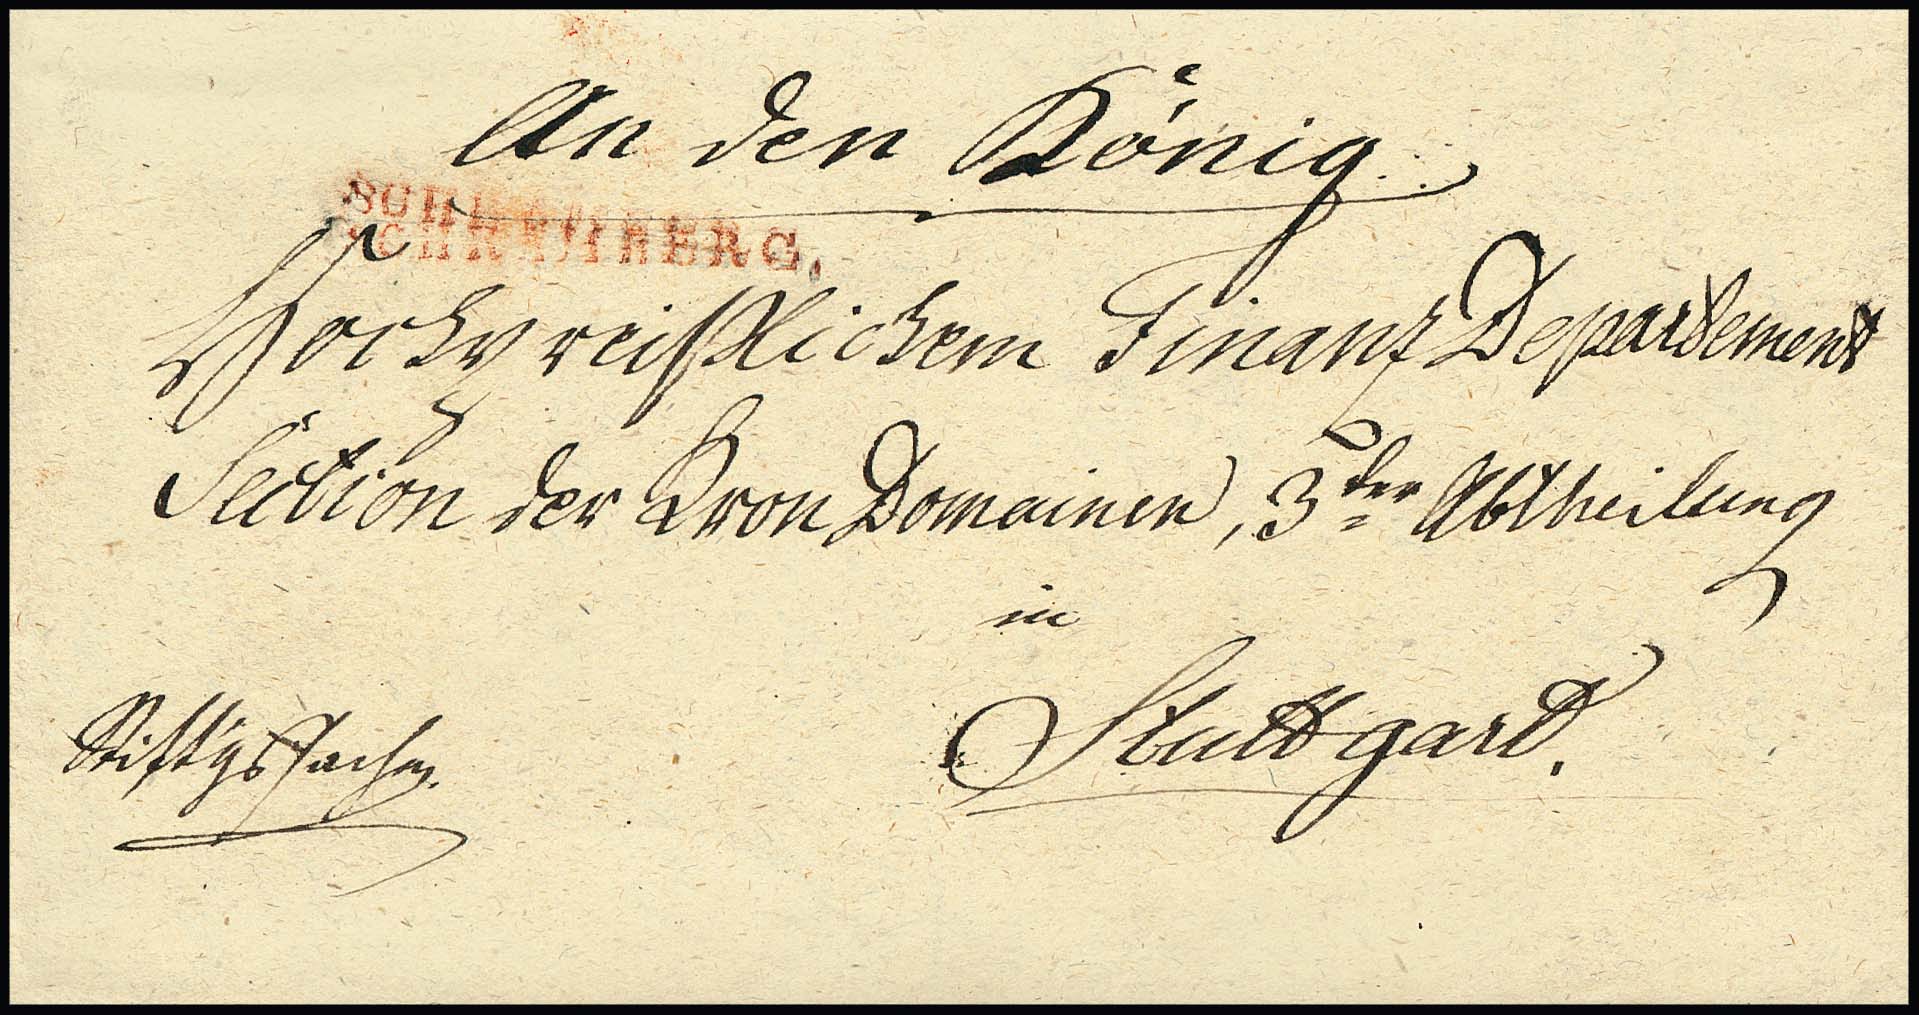 An den König.
SCHRAMBERG.
Hochpreißlichem Finanz Departement
Section der Kron Domainen, 3ter Abtheilung
in
Stuttgard.